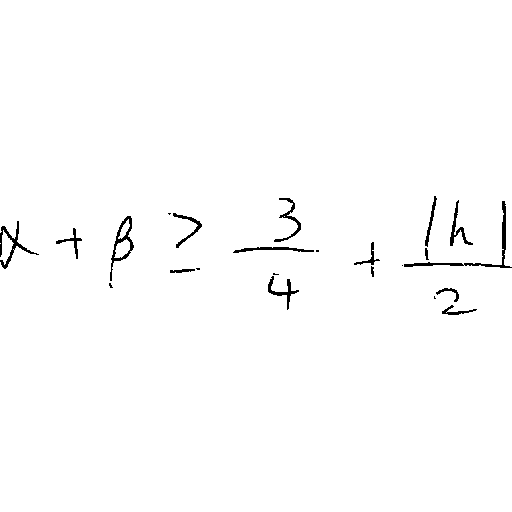 α + β ≥ \frac{3}{4} + \frac{|h|}{2}